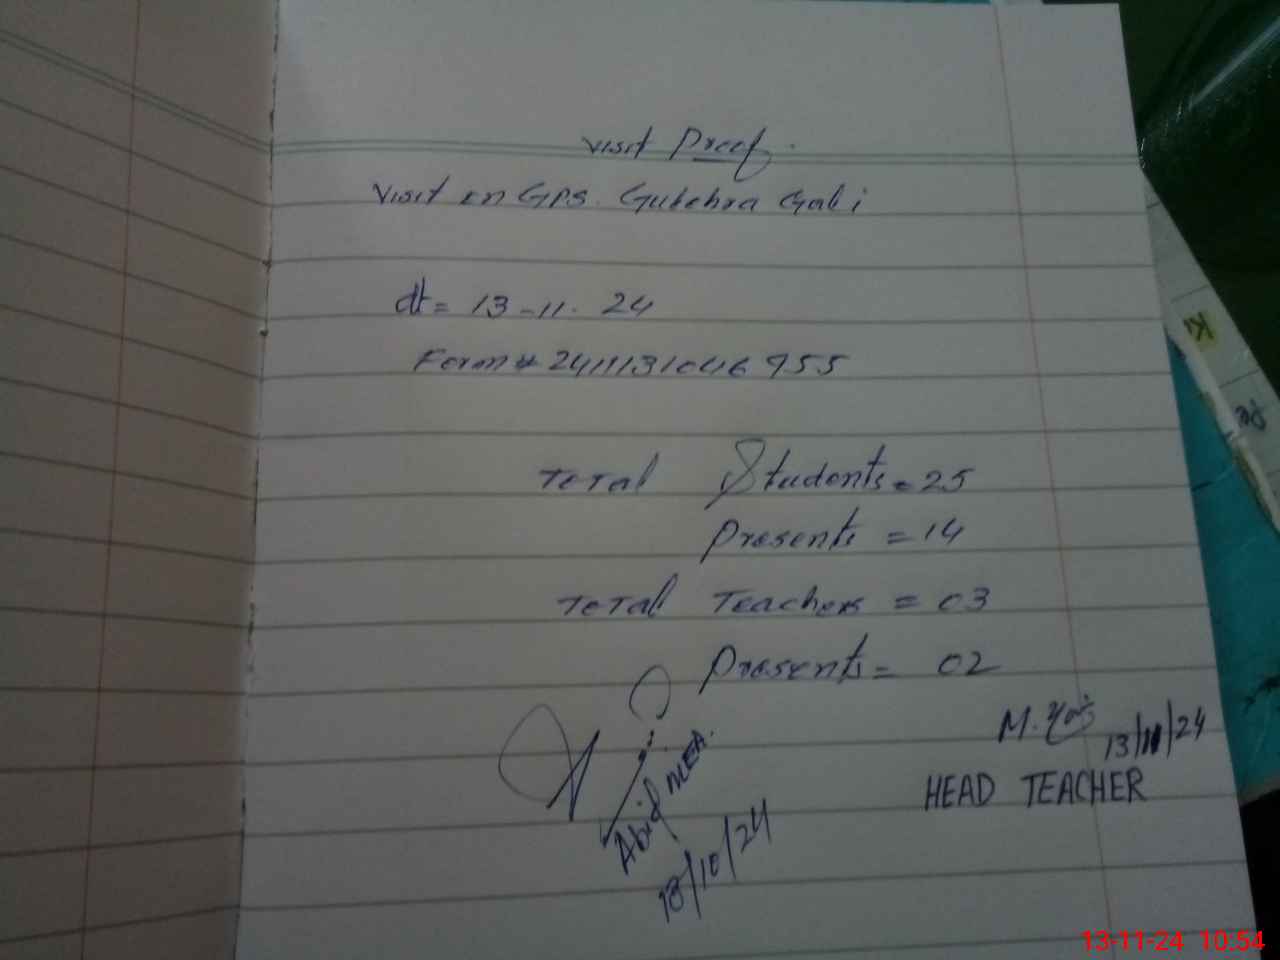 Visit Proof.
Visit on GPS. Gutehra Gali
dt = 13-11-24
Form # 2411131046955
Total Students = 25
Presents = 14
Total Teachers = 03
Presents = 02
M. 13/11/24
HEAD TEACHER
Abid MEA.
13/10/24
13-11-24 10:54